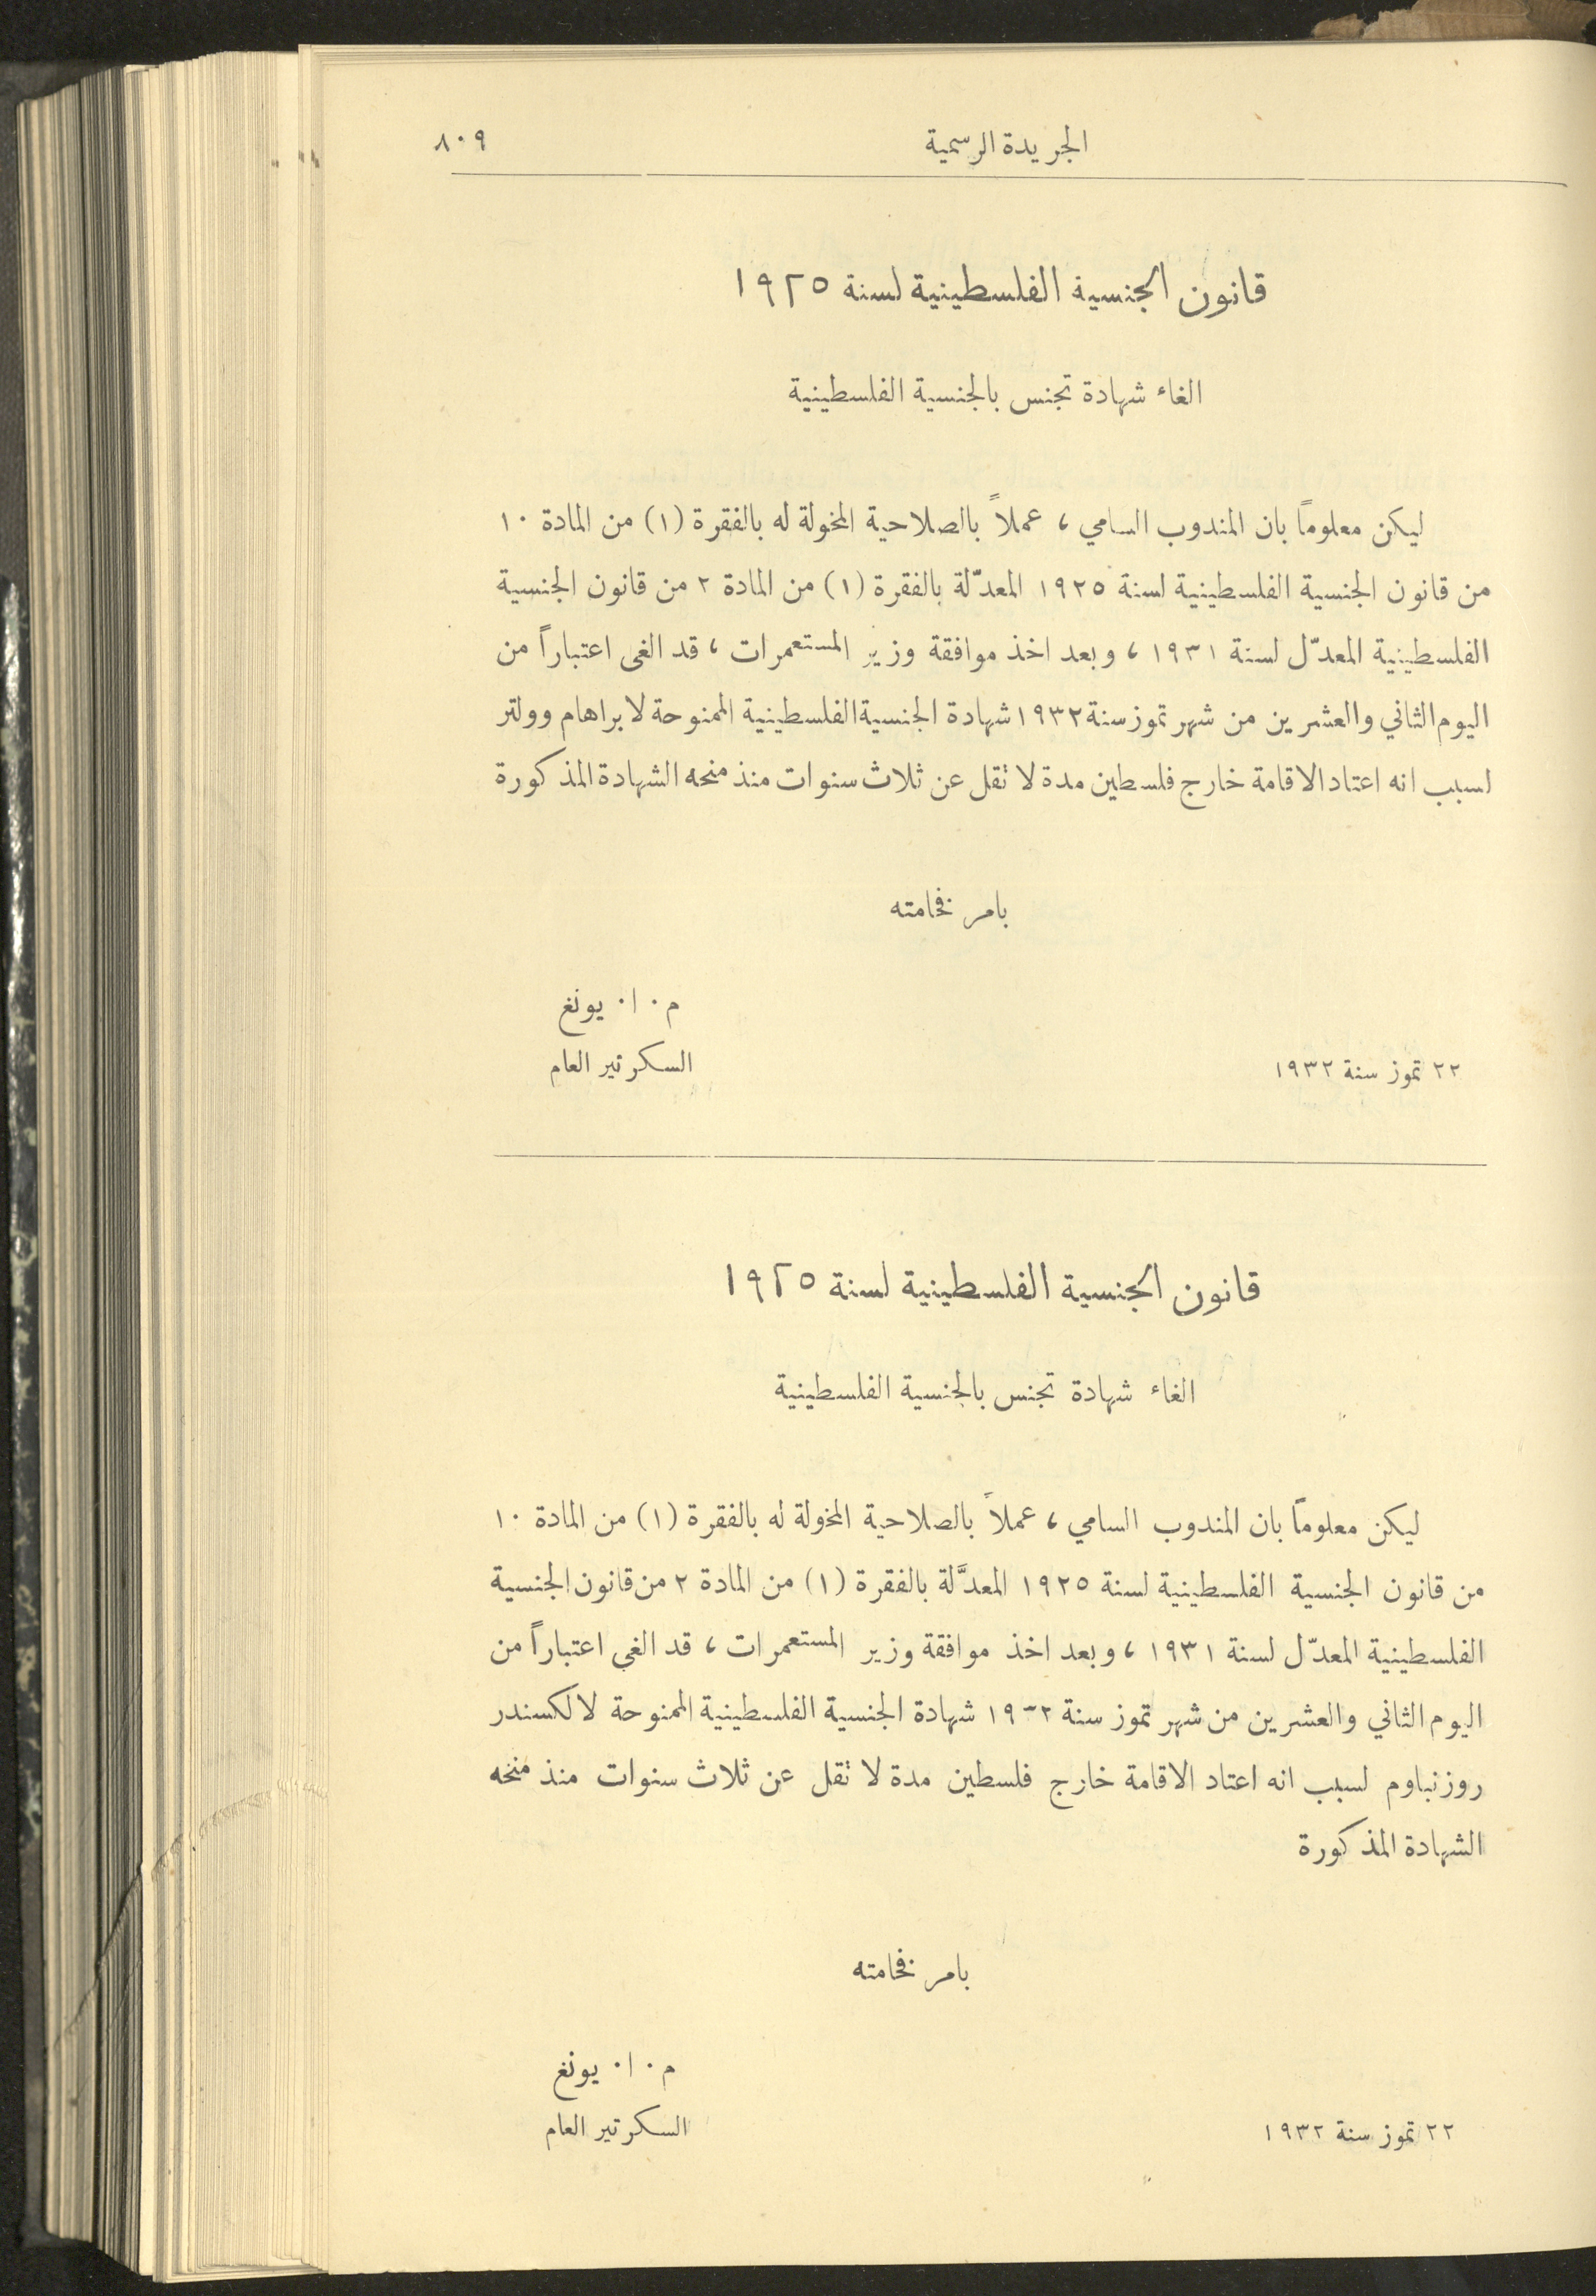 الجريدة الرسمية ٨٠٩
قانون الجنسية الفلسطينية لسنة ١٩٢٥
الغاء شهادة تجنس بالجنسية الفلسطينية
ليكن معلوماً بان المندوب السامي ، عملاً بالصلاحية المخولة له بالفقرة (١) من المادة ١٠
من قانون الجنسية الفلسطينية لسنة ١٩٢٥ المعدّلة بالفقرة (١) من المادة ٢ من قانون الجنسية
الفلسطينية المعدّل لسنة ١٩٣١ ، وبعد اخذ موافقة وزير المستعمرات ، قد الغى اعتباراً من
اليوم الثاني والعشرين من شهر تموز سنة ١٩٣٢ شهادة الجنسية الفلسطينية الممنوحة لابراهام وولتر
لسبب انه اعتاد الاقامة خارج فلسطين مدة لا تقل عن ثلاث سنوات منذ منحه الشهادة المذكورة
بامر فخامته
م٠ ا٠ يونغ
٢٢ تموز سنة ١٩٣٢ السكرتير العام
قانون الجنسية الفلسطينية لسنة ١٩٢٥
الغاء شهادة تجنس بالجنسية الفلسطينية
ليكن معلوماً بان المندوب السامي ، عملاً بالصلاحية المخولة له بالفقرة (١) من المادة ١٠
من قانون الجنسية الفلسطينية لسنة ١٩٢٥ المعدَّلة بالفقرة (١) من المادة ٢ من قانون الجنسية
الفلسطينية المعدّل لسنة ١٩٣١ ، وبعد اخذ موافقة وزير المستعمرات ، قد الغى اعتباراً من
اليوم الثاني والعشرين من شهر تموز سنة ١٩٣٢ شهادة الجنسية الفلسطينية الممنوحة لالكسندر
روزنباوم لسبب انه اعتاد الاقامة خارج فلسطين مدة لا تقل عن ثلاث سنوات منذ منحه
الشهادة المذكورة
بامر فخامته
م٠ ا٠ يونغ
٢٢ تموز سنة ١٩٣٢ السكرتير العام